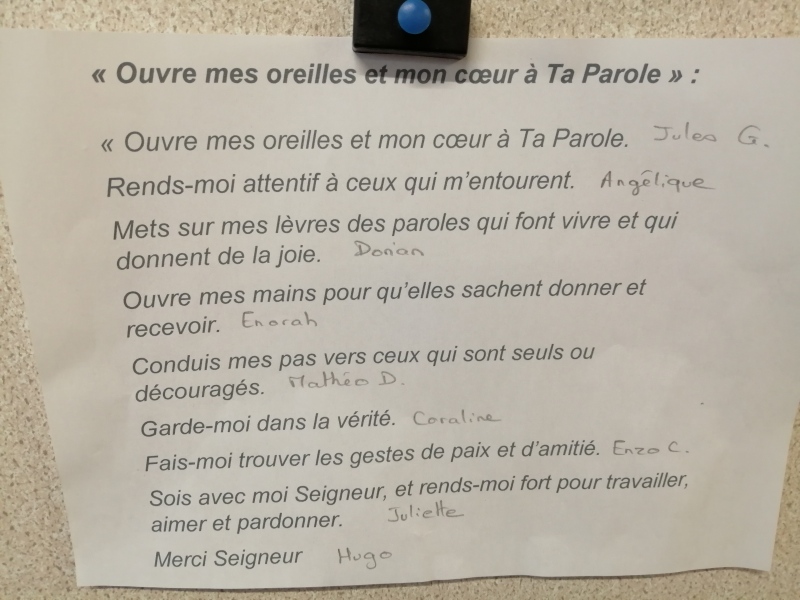 « Ouvre mes oreilles et mon cœur à Ta Parole » :
« Ouvre mes oreilles et mon cœur à Ta Parole. Jules G.
Rends-moi attentif à ceux qui m'entourent. Angélique
Mets sur mes lèvres des paroles qui font vivre et qui
donnent de la joie. Dorian
Ouvre mes mains pour qu'elles sachent donner et
recevoir. Enorah
Conduis mes pas vers ceux qui sont seuls ou
découragés. Mathéo D.
Garde-moi dans la vérité. Coraline
Fais-moi trouver les gestes de paix et d'amitié. Enzo C.
Sois avec moi Seigneur, et rends-moi fort pour travailler,
aimer et pardonner. Juliette
Merci Seigneur Hugo